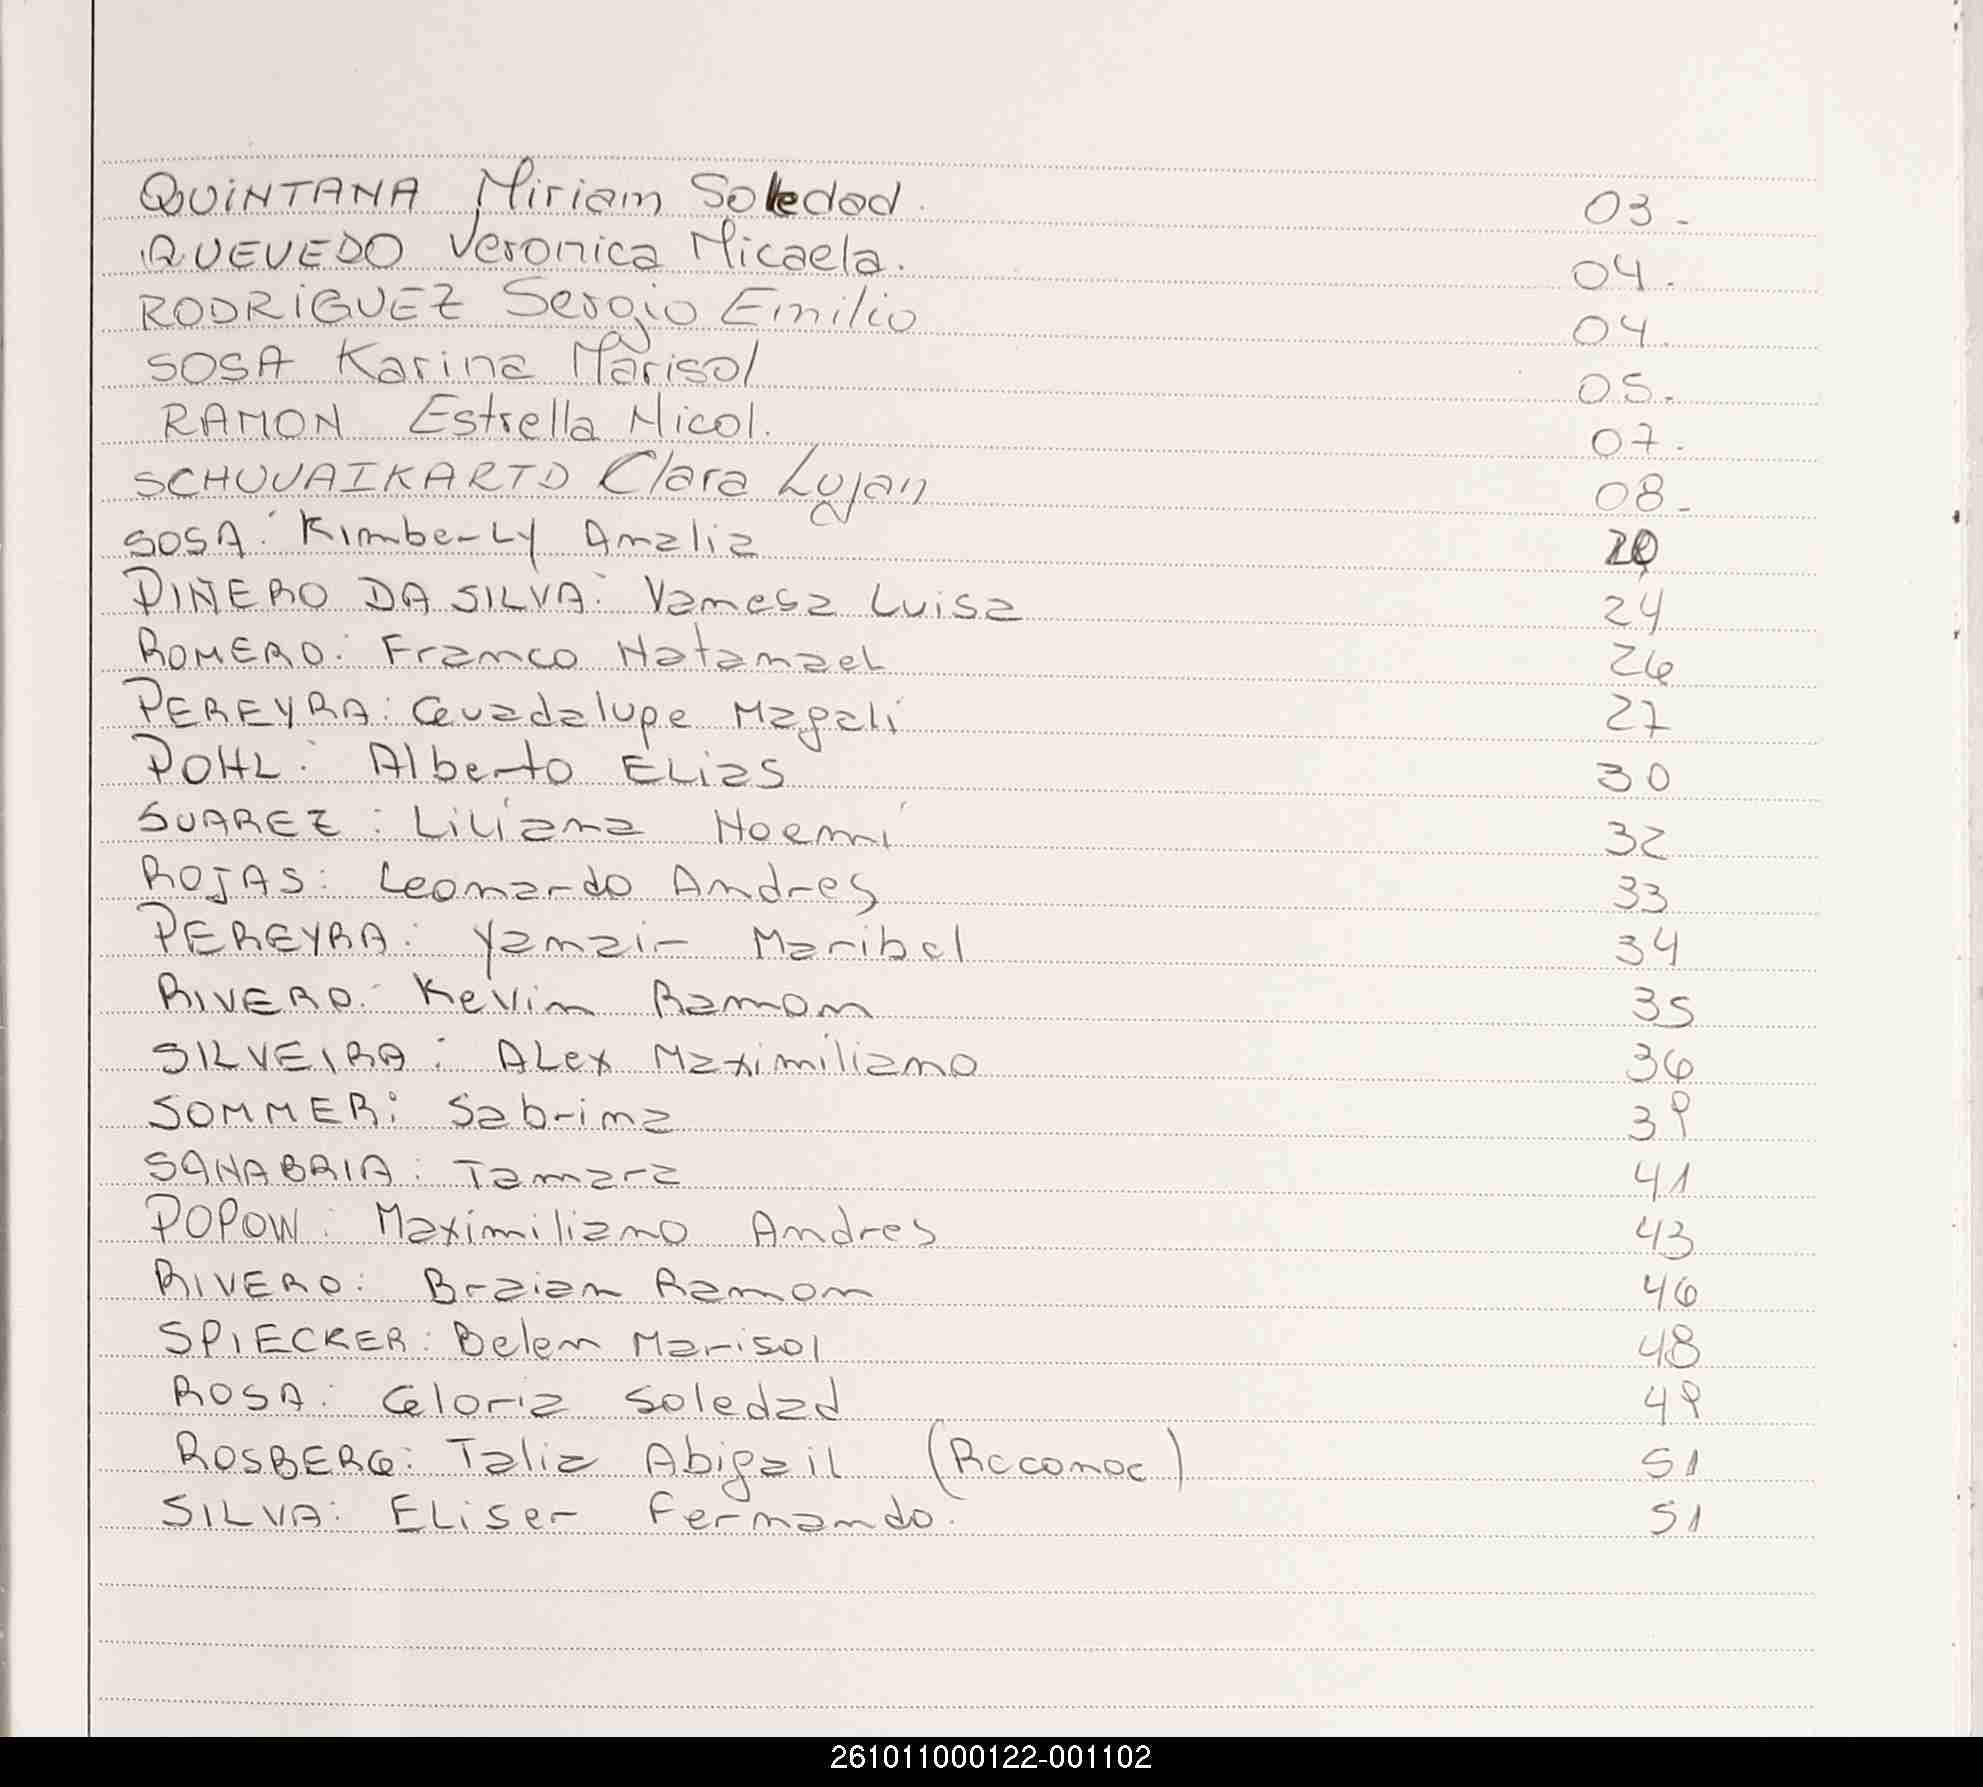 QUINTANA Miriam Soledad. 03.-
QUEVEDO Veronica Micaela. 04.
RODRIGUEZ Sergio Emilio 04.
SOSA Karina Marisol 05.-
RAMON Estrella Nicol. 07.
SCHUVAIKARTD Clara Lujan 08.-
SOSA: Kimberly Analia
PINERO DA SILVA: Vanesa Luisa 24
ROMERO: Franco Natanael 26
PEREYRA: Guadalupe Magali 27
POHL: Alberto Elias 30
SUAREZ: Liliana Noemí 32
ROJAS: Leonardo Andres 33
PEREYRA: Yanair Maribel 34
RIVERO: Kevin Ramon 35
SILVEIRA: Alex Maximiliano 36
SOMMER: Sabrina 39
SANABRIA: Tamara 41
POPOW: Maximiliano Andres 43
RIVERO: Braian Ramon 46
SPIECKER: Belen Marisol 48
ROSA: Gloria Soledad 49
ROSBERG: Talia Abigail (Reconoc) 51
SILVA: Eliser Fernando. 51
261011000122-001102